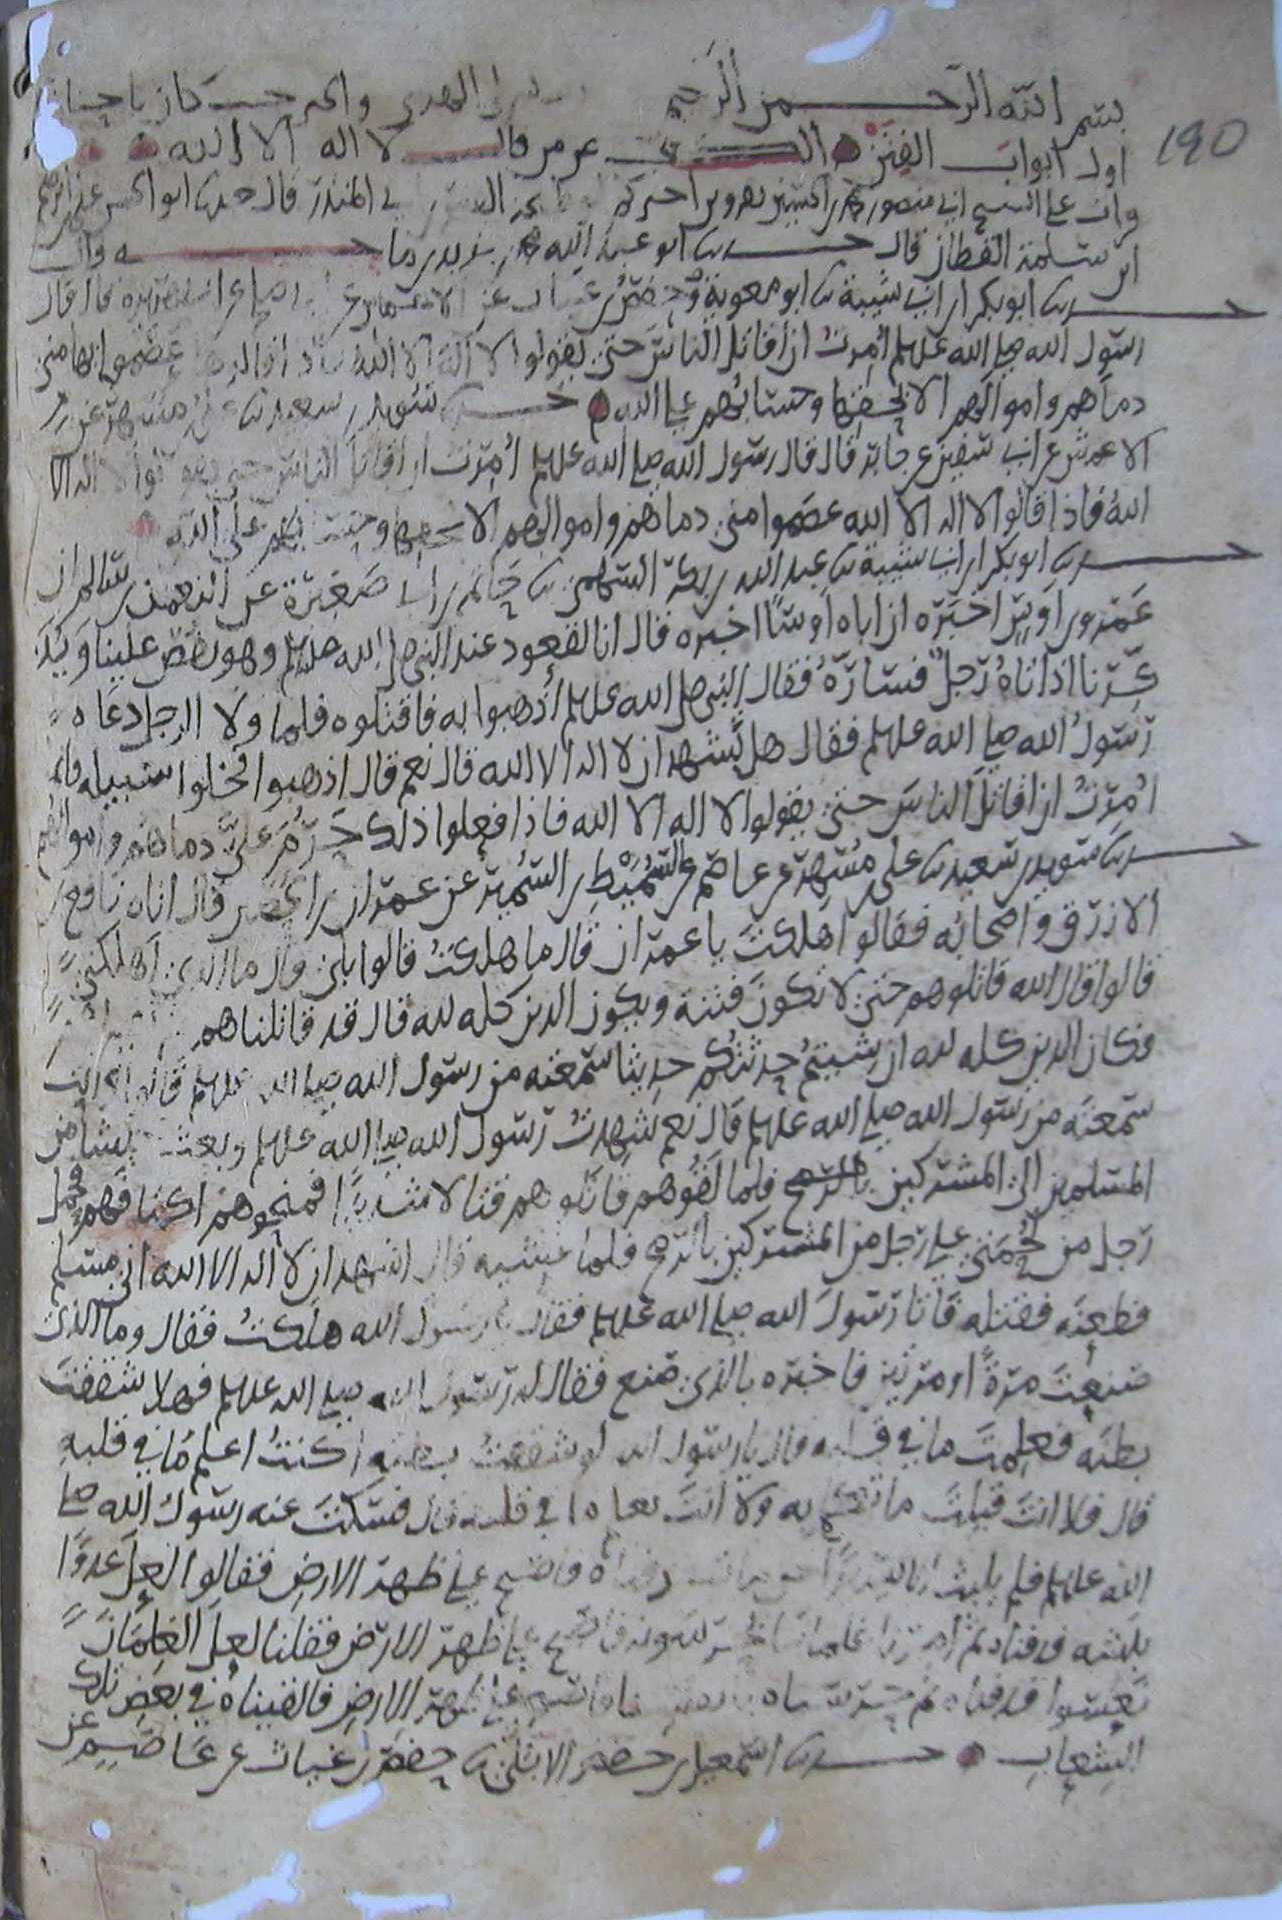 بسم الله الرحمن الرحيم
190
اول ابواب الفتن الكف عمن قال لا اله الا الله
قرات على الشيخ ابي منصور محمد بن الحسين اخبركم ابي المنذر قال حدثنا ابو الحسن علي بن ابرهيم
ابن سلمة القطان قال حدثنا ابو عبد الله محمد بن يزيد بن ماجه قال
حدثنا ابو بكر بن ابي شيبة نا ابو معوية وحفص بن غياث عن الاعمش عن ابي صالح عن ابي هريرة قال قال
رسول الله صلى الله عليه وسلم أُمرتُ ان أقاتل الناسَ حتى يقولوا لا اله الا الله فاذا قالوها عصموا بها مني
دماهم واموالهم الا بحقها وحسابُهم على الله حدثنا سويد بن سعيد نا علي بن مسهر عن
الاعمش عن ابي سفين عن جابر قال قال رسول الله صلى الله عليه وسلم أُمرت ان اقاتل الناس حتى يقولوا لا اله الا
اللهُ فاذا قالوا لا اله الا الله عصموا مني دماهم واموالهم الا بحقها وحسابهم على الله
حدثنا ابو بكر بن ابي شيبة نا عبد الله بن بكر السهمي نا حاتم بن ابي صَغِيرَة عن النعمن بن سالم ان
عَمرو بن اَوسٍ اخبَره ان اباه اَوسًا اخبره قال انا لقعود عند النبي صلى الله عليه وسلم وهو يقص علينا ويذكرنا
اذ اتاهُ رَجلٌ فسارّهُ فقال النبي صلى الله عليه وسلم اذهبوا به فاقتلوه فلما ولا الرجل دعاه
رسولُ الله صلى الله عليه وسلم فقال هل تشهد ان لا اله الا الله قال نعم قال اذهبوا فخلوا سبيله فانما
اُمِرتُ ان اقاتلَ الناسَ حتى يقولوا لا اله الا الله فاذا فعلوا ذلك حَرُمَ عليَّ دماهم واموالهم
حدثنا سويد بن سعيد نا علي بن مُسهر عن عاصم عن السُمَيْطِ بن السُمير عن عمران بن الحصين قال اتاه نافع بن
الازرق واصحابُه فقالوا هلكتَ يا عمران قال ما هلكتُ قالوا بلى قال ما الذي اهلكني
قالوا قال الله قاتلوهم حتى لا تكونَ فتنة ويكون الدين كله لله قال قد قاتلناهم
فكان الدين كله لله ان شيتمُ حدثتكم حديثا سمعته من رسول الله صلى الله عليه وسلم قالوا انت
سمعتَه من رسول الله صلى الله عليه وسلم قال نعم شهدتُ رسول الله صلى الله عليه وسلم وبعث جيشا من
المسلمين الى المشركين فلما لقُوهم قاتلوهم قتالا شديدا فمنحوهم اكتافَهم فحمل
رجل من لُحمتي على رجل من المشركين بالرمح فلما غشيه قال اشهد ان لا اله الا الله اني مسلم
فطعنَه فقتله فاتا رسولَ الله صلى الله عليه وسلم فقال يا رسول الله هلكتُ فقال وما الذي
صنعتَ مرةً او مرتين فاخبره بالذي صنع فقال له رسول الله صلى الله عليه وسلم فهلا شققتَ
بطنَه فعلِمتَ ما في قلبه قال يا رسول الله لو شققتُ بطنه اكنتُ اعلم ما في قلبهِ
قال فلا انتَ قبلتَ ما تكلم به ولا انتَ تعلم ما في قلبه قال فسكتَ عنه رسولُ الله صلى
الله عليه وسلم فلم يلبث الا يسيرا حتى مات فدفناه فاصبح على ظهر الارضِ فقالوا لعل عدوًّا
نبشه فدفناه ثم امرنا غلماننا يحرسونه فاصبح على ظهر الارض فقلنا لعلَ الغِلمان
نعسوا فدفناه ثم حرسناه بانفسنا فاصبح على ظهر الارضِ فالقيناهُ في بعض تلك
الشعاب حدثنا اسمعيل بن حفص الابُلي نا حفص بن غياث عن عاصم عن